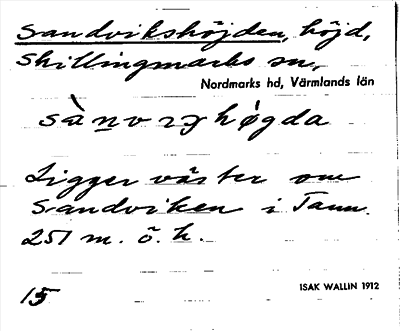 Sandvikshöjden, höjd,
Skillingmarks sn,
Nordmarks hd, Värmlands län
Ligger väster om
Sandviken i Tann.
251 m. ö. h.
15
ISAK WALLIN 1912